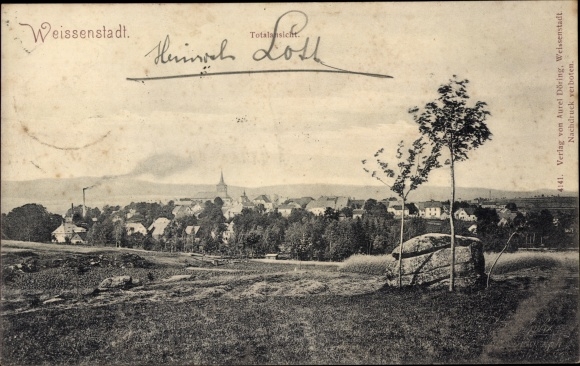 Weissenstadt.
Totalansicht.
Heinrich Lott
4141. Verlag von Aurel Döring, Weissenstadt.
Nachdruck verboten.